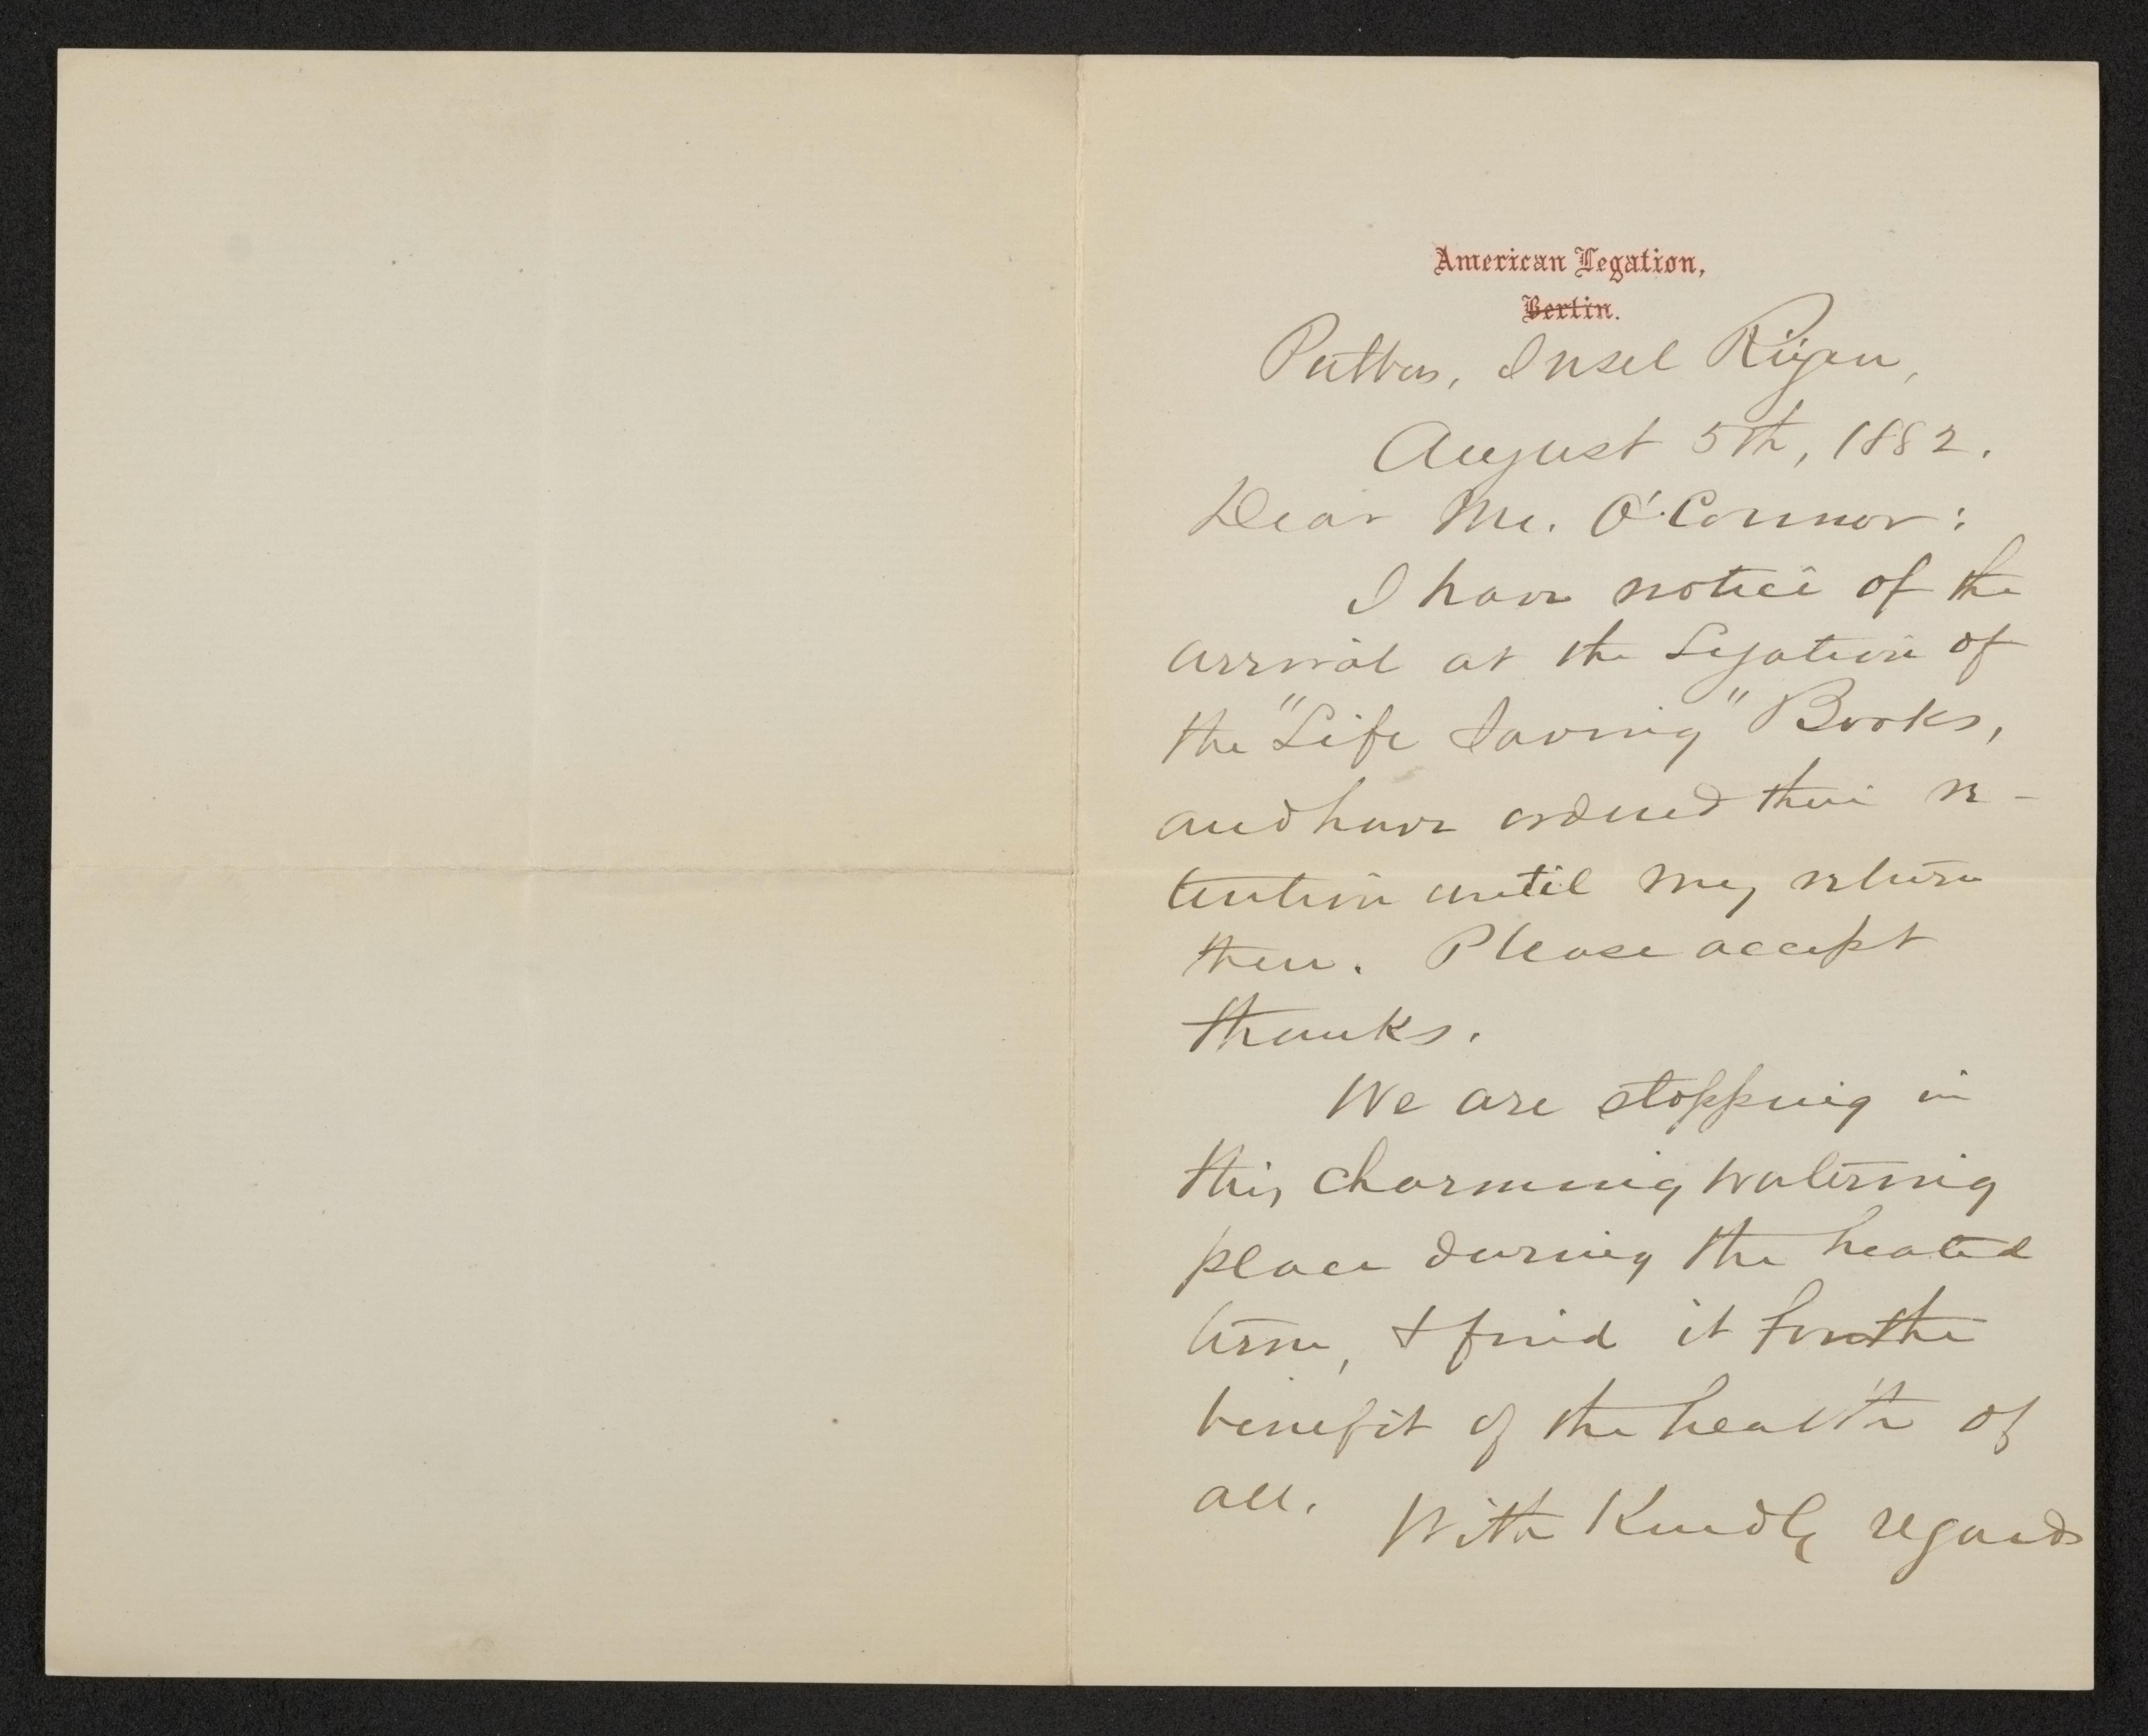 American Legation,
Berlin.
Putbus, Insel Rügen,
August 5th, 1882.
Dear Mr. O'Connor:
I have notice of the
arrival at the Legation of
the "Life Saving" Books,
and have ordered their re-
tention until my return
there. Please accept
thanks.
We are stopping in
this charming watering
place during the heated
term, & find it for the
benefit of the health of
all.
With Kindly regards